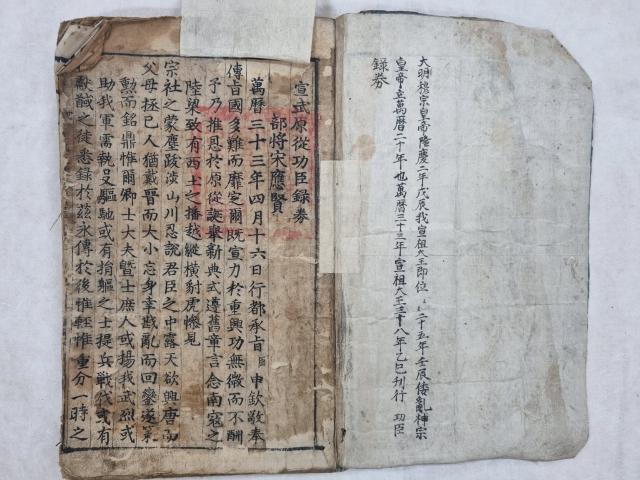 大明穆宗皇帝隆慶二年戊辰我宣祖大王即位〻二十五年壬辰倭亂神宗
皇帝立萬曆二十年也萬曆三十三年宣祖大王三十八年乙巳刊行 功臣
録券
宣武原從功臣録券
部將宋應賢
萬曆三十三年四月十六日行都承旨臣申欽敬奉
傳旨國多難而靡定爾既宣力於重興功無微而不酬
予乃推恩於原從誕擧新典式遵舊章言念南寇之
陸梁致有西土之播越縱橫豺虎慘見
宗社之蒙塵跋涉山川忍說君臣之中露天欲興唐而
父母拯已人猶戴晉而大小忘身幸戡亂而回鑾遂策
勳而銘鼎惟爾卿士大夫曁士庶人或揚我武烈或
助我軍需執殳驅馳或有捐軀之士提兵戰伐或有
獻馘之徒悉錄於玆永傳於後惟輕惟重分一時之